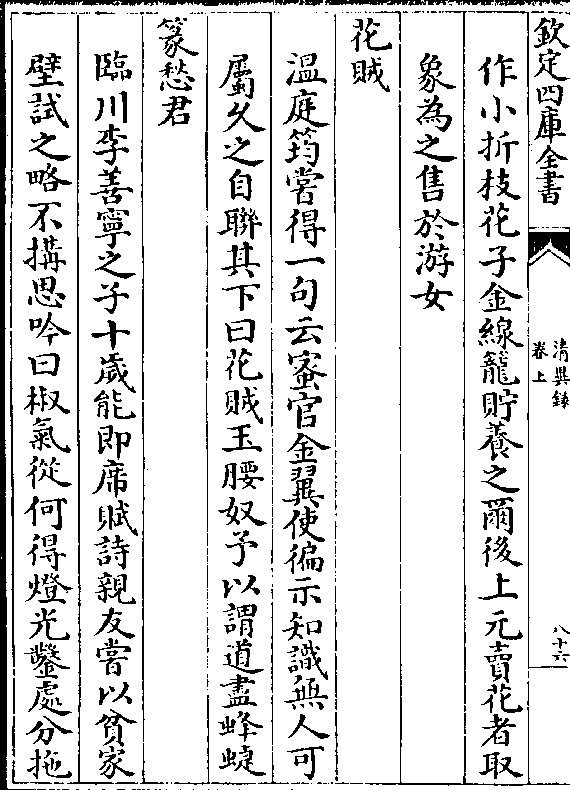 欽定四庫全書
清異錄
卷上
八十六
作小折枝花子金線籠貯養之爾後上元賣花者取
象為之售於游女
花賊
溫庭筠嘗得一句云蜜官金翼使徧示知識無人可
屬久之自聯其下曰花賊玉腰奴予以謂道盡蜂蜨
篆愁君
臨川李善寧之子十歲能即席賦詩親友嘗以貧家
壁試之略不搆思吟曰椒氣從何得燈光鑿處分拖